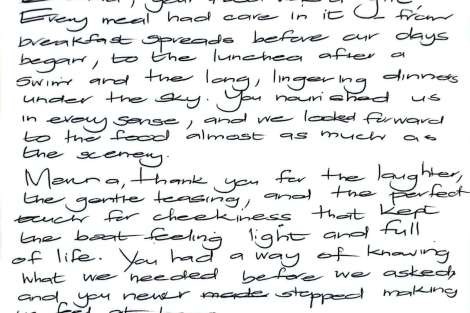 Every meal had care in it from
breakfast spreads before our days
began, to the lunches after a
swim and the long, lingering dinners
under the sky. You nourished us
in every sense, and we looked forward
to the food almost as much as
the scenery.
thank you for the laughter,
the gentle teasing, and the perfect
touch for cheekiness that kept
the boat feeling light and full
of life. You had a way of knowing
what we needed before we asked,
and you never made stopped making